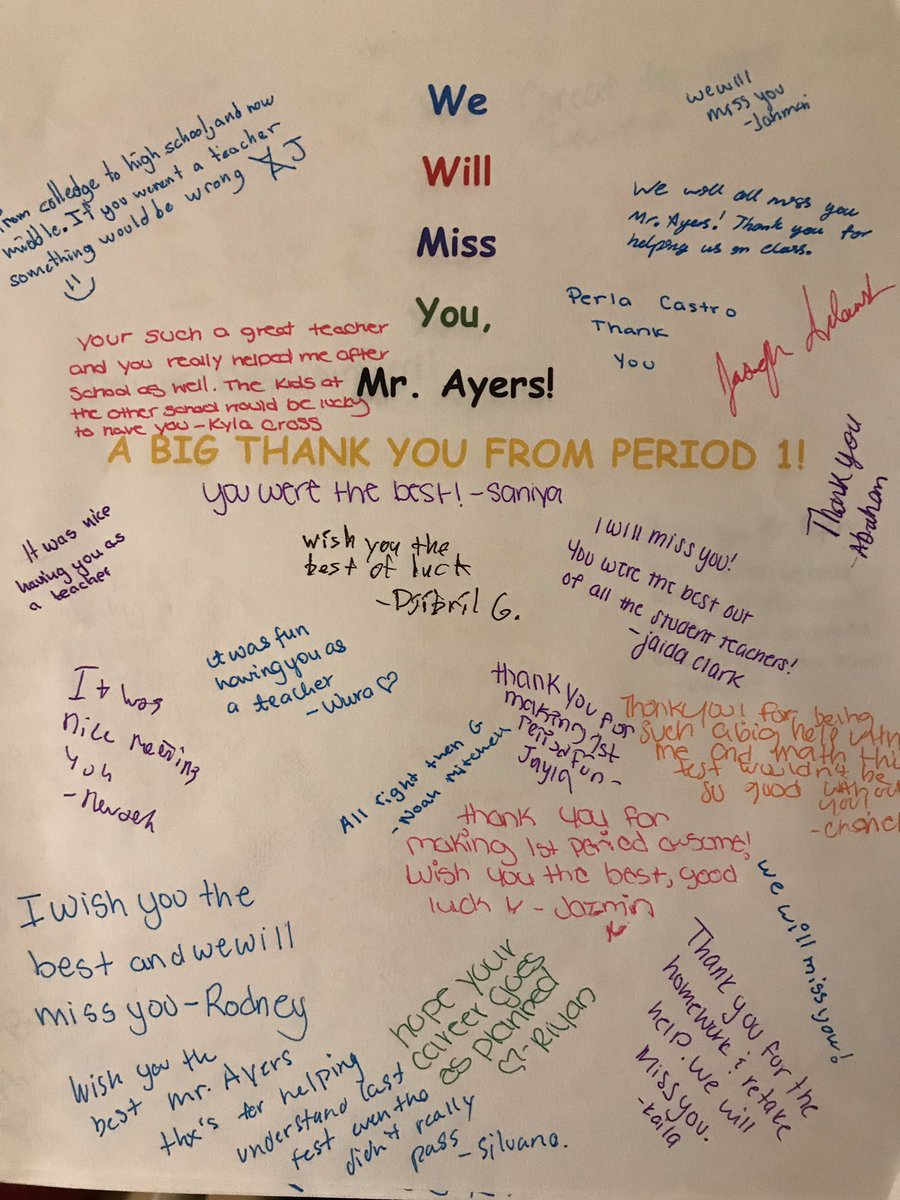 We
Will
Miss
You,
Mr. Ayers!
A BIG THANK YOU FROM PERIOD 1!
from colledge to high school, and now
middle. If you weren't a teacher
something would be wrong AJ
we will
miss you
- Jahmari
We will all miss you
Mr. Ayers! Thank you for
helping us in class.
Perla Castro
Thank
You
Joseph
your such a great teacher
and you really helped me after
School as well. The kids at
the other school would be lucky
to have you - Kyla Cross
you were the best! - Saniya
Thank you
- Abraham
It was nice
having you as
a teacher
wish you the
best of luck
- Djibril G.
I will miss you!
You were the best out
of all the student teachers!
- jaida clark
it was fun
having you as
a teacher
- Wura
It was
nice meeting
you
- nevaeh
thank you for
making 1st
period fun -
Jayla
All right then G
- Noah Mitchell
Thankyou! for being
such a big help with
me and math this
test wouldn't be
so good without
you!
thank you for
making 1st period awsome!
Wish you the best, good
luck - Jazmin
I wish you the
best and we will
miss you - Rodney
we will miss you!
hope your
career goes
as planned
- Riylan
Thank you for the
homework & retake
help. We will
Miss you.
- Kaila
Wish you th
best mr. Ayers
thx's for helping
understand last
test even tho
didn't really
pass - Silvano.